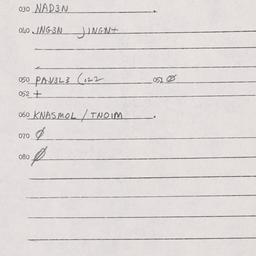 030 NAD3N
040 JNG3N JINGN+
050 PAN3L3 051 Ø
052 +
060 KNASMOL / TNOIM
070 Ø
080 Ø